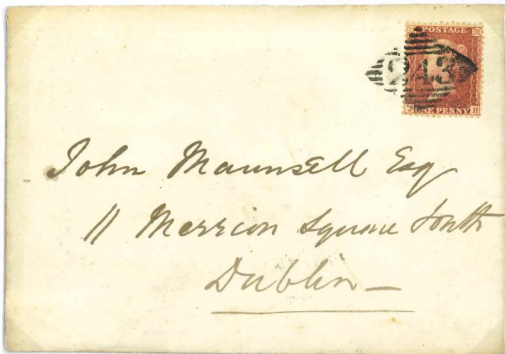 POSTAGE
243
ONE PENNY H
John Maunsell Esq
11 Merrion Square South
Dublin